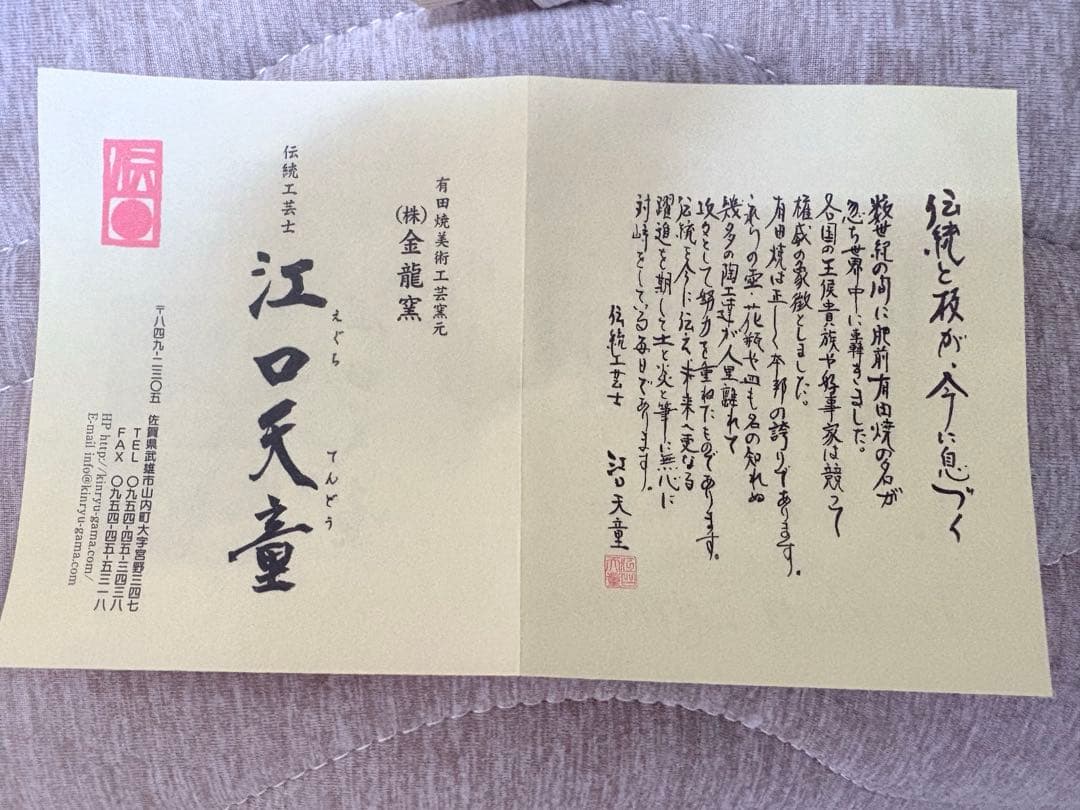 伝統と技が、今に息づく
数世紀の間に肥前有田焼の名が
忽ち世界中に轟きました。
各国の王侯貴族や好事家は競って
権威の象徴としました。
有田焼は正しく本邦の誇りであります。
永らくの壷・花瓶や皿も名の知れぬ
幾多の陶工達が人里離れて
攻々として努力を重ねたものであります。
伝統を今に伝え未来へ更なる
躍進を期して土と炎と筆に無心に
対峙をしている毎日であります。
伝統工芸士 江口天童
有田焼美術工芸窯元
(株)金龍窯
伝統工芸士
江口天童
えぐち てんどう
伝
〒八四九-二三〇五 佐賀県武雄市山内町大字宮野三四七
TEL 〇九五四-四五-三四三八
FAX 〇九五四-四五-五三一八
HP http://kinryu-gama.com/
E-mail info@kinryu-gama.com